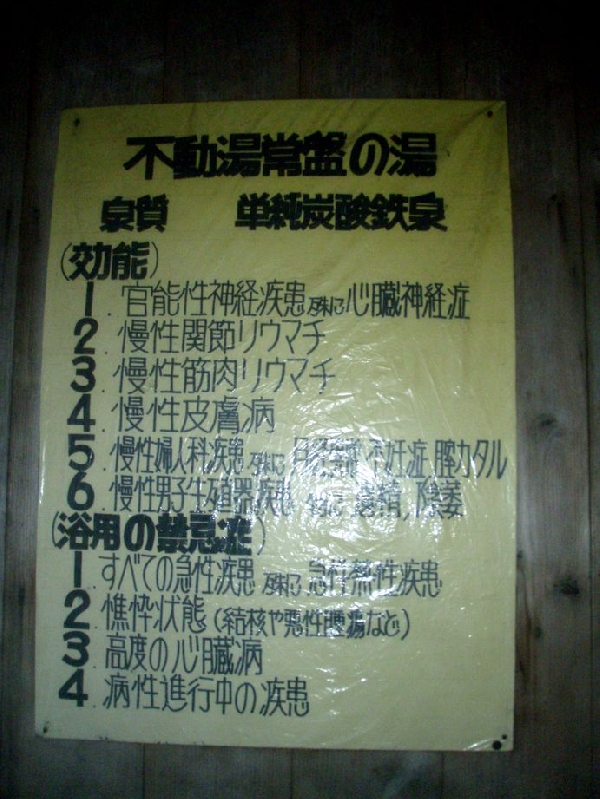 不動湯常盤の湯
泉質 単純炭酸鉄泉
(効能)
1. 官能性神経疾患 殊に 心臓神経症
2. 慢性関節リウマチ
3. 慢性筋肉リウマチ
4. 慢性皮膚病
5. 慢性婦人科疾患 殊に 不妊症, 膣カタル
6. 慢性男子生殖器疾患 陰萎
(浴用の禁忌症)
1. すべての急性疾患 殊に 急性熱性疾患
2. 憔悴状態 (結核や悪性腫瘍など)
3. 高度の心臓病
4. 病性進行中の疾患